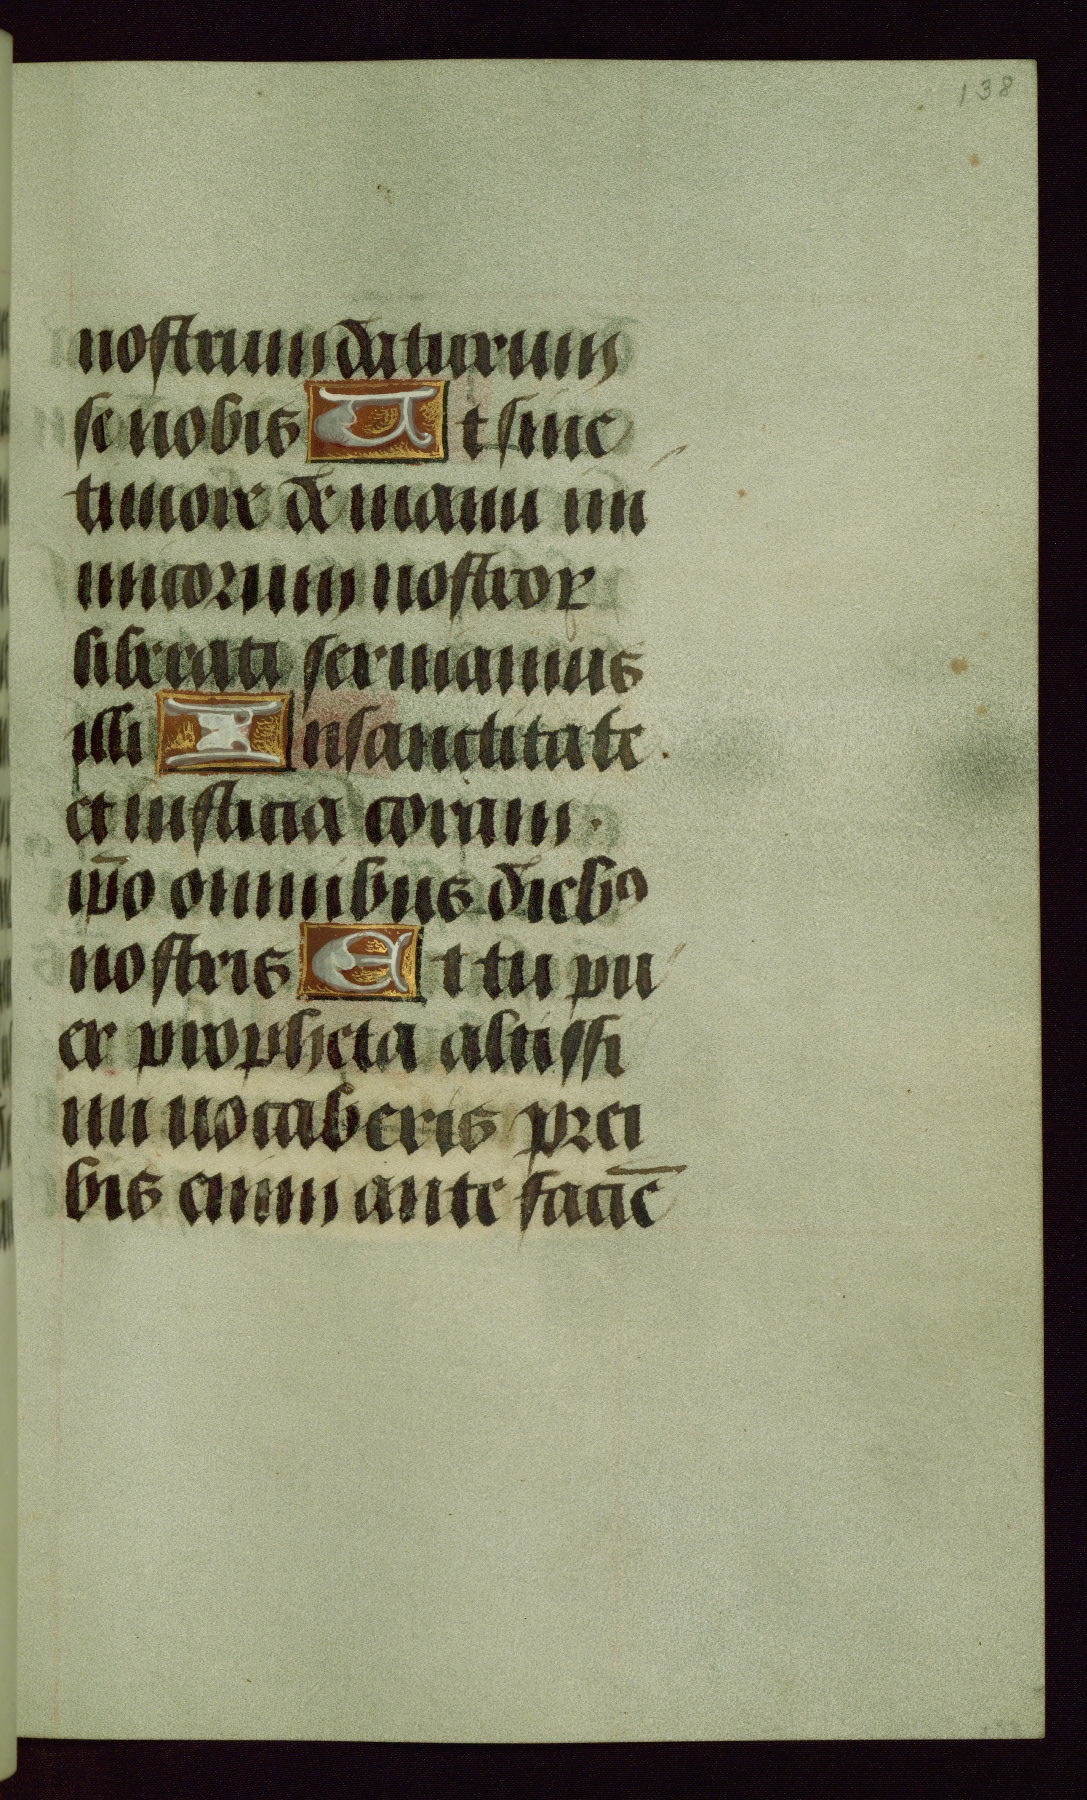 138
nostrum daturum
se nobis Ut sine
timore de manu ini
micorum nostroꝝ
liberati seruiamus
illi In sanctitate
et iusticia coram
ip̄o omnibus diebꝰ
nostris Et tu pu
er propheta altissi
mi uocaberis prei
bis enim ante faciē